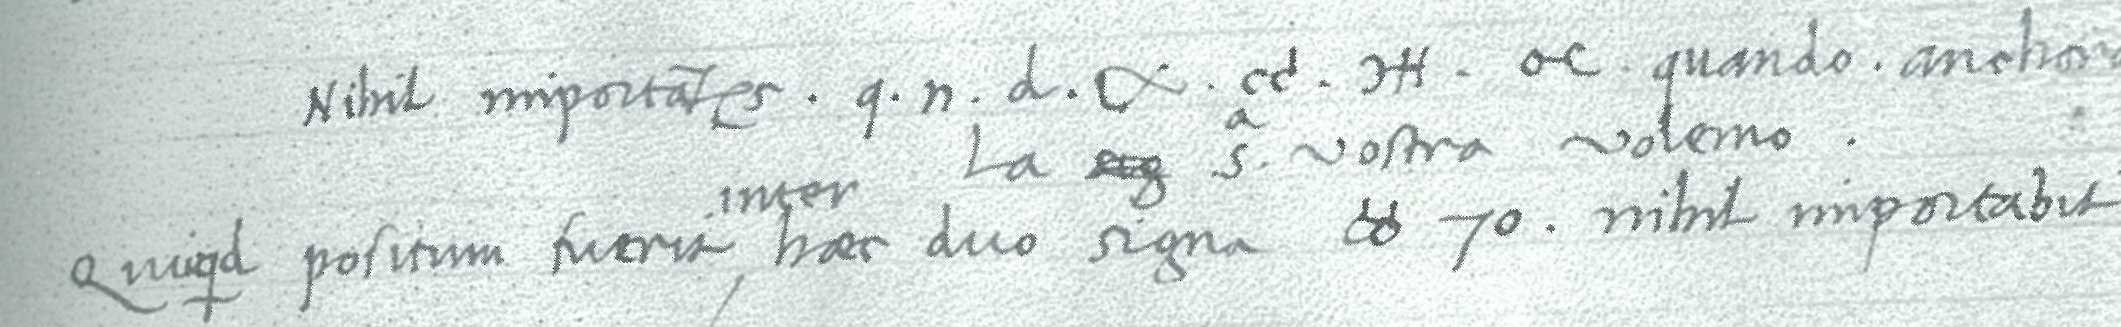 Nihil importātes . q. n. d. . cd. . oc quando . anchora
La S.a vostra volemo .
Quiqd positum fuerit inter hæc duo signa 70. nihil importabit